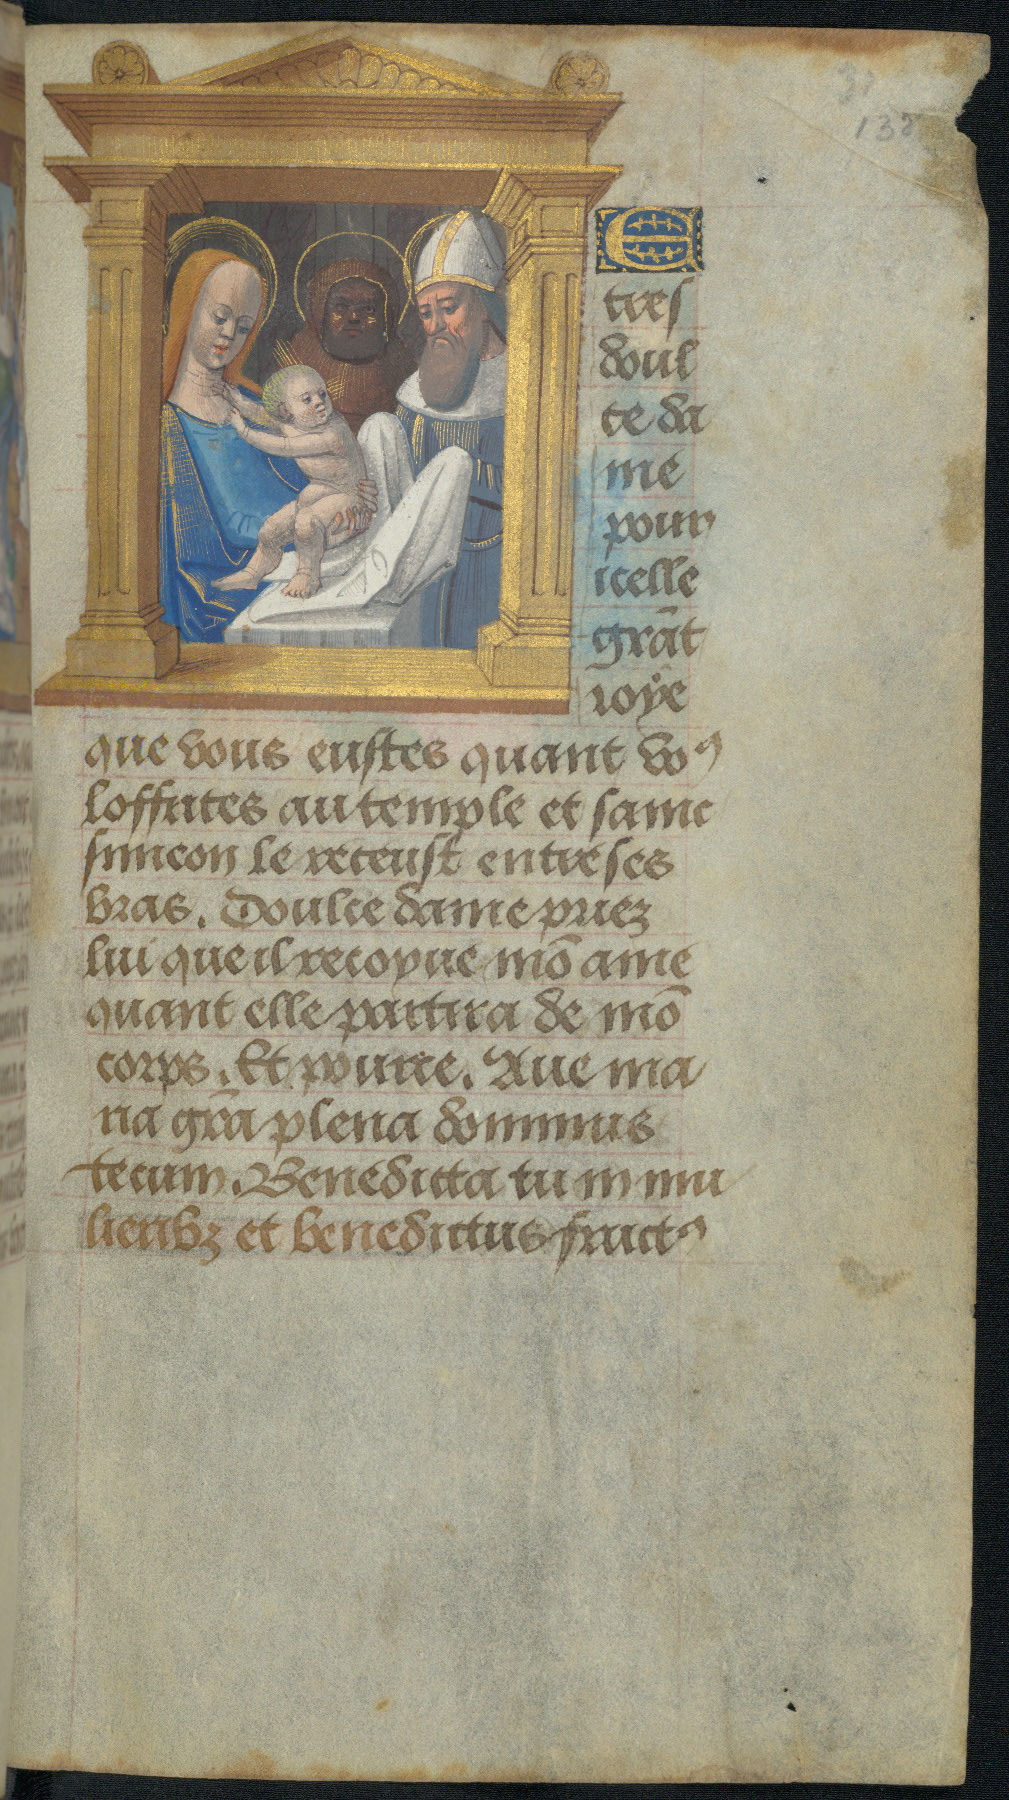 E
tres
doul
ce da
me
pour
icelle
grāt
ioye
que vous eustes quant voꝯ
loffrites au temple et sainc
simeon le receust entre ses
bras. Doulce dame priez
lui que il recoyue mō ame
quant elle partira de mō
corps. Et pource. Aue ma
ria gr̄a plena dominus
tecum. Benedicta tu in mu
lieribꝫ et benedictus fructꝯ